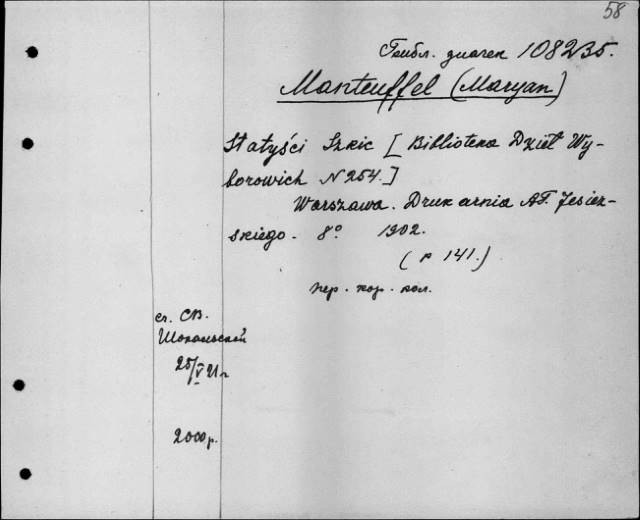 58
Публ. значек 108235.
Manteuffel (Maryan)
Statyści Szkic [Biblioteka Dzieł Wy-
borowich N 254.]
Warszawa. Drukarnia A.T. Jezier-
skiego. 8° 1902.
(p 141.)
пер. кор. кол.
сл. СВ.
Шокальской
25/V 21 г
2000 р.